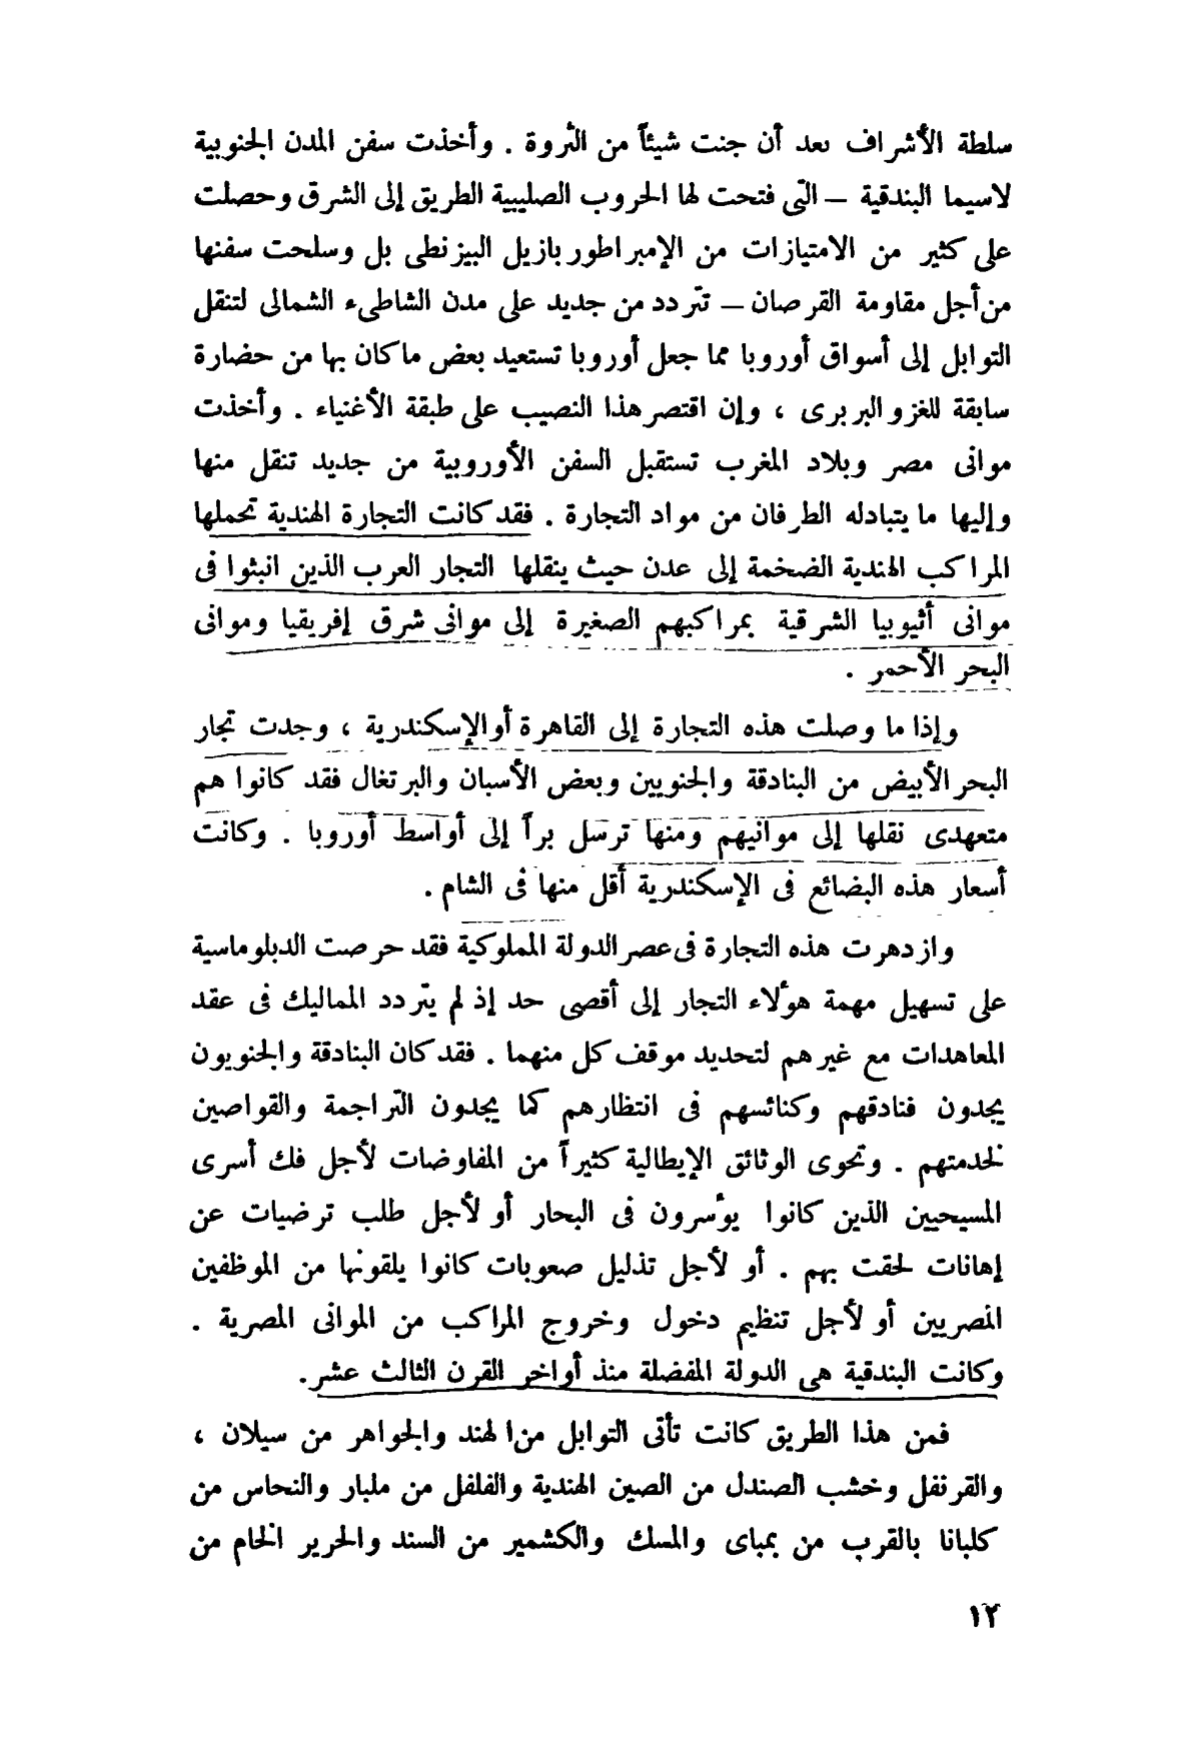 سلطة الأشراف بعد أن جنت شيئاً من الثروة . وأخذت سفن المدن الجنوبية
لاسيما البندقية – التى فتحت لها الحروب الصليبية الطريق إلى الشرق وحصلت
على كثير من الامتيازات من الإمبراطور بازيل البيزنطى بل وسلحت سفنها
من أجل مقاومة القرصان – تتردد من جديد على مدن الشاطىء الشمالى لتنقل
التوابل إلى أسواق أوروبا مما جعل أوروبا تستعيد بعض ما كان بها من حضارة
سابقة للغزو البربرى ، وإن اقتصر هذا النصيب على طبقة الأغنياء . وأخذت
موانى مصر وبلاد المغرب تستقبل السفن الأوروبية من جديد تنقل منها
وإليها ما يتبادله الطرفان من مواد التجارة . فقد كانت التجارة الهندية تحملها
المراكب الهندية الضخمة إلى عدن حيث ينقلها التجار العرب الذين انبثوا فى
موانى أثيوبيا الشرقية بمراكبهم الصغيرة إلى موانى شرق إفريقيا وموانى
البحر الأحمر .
وإذا ما وصلت هذه التجارة إلى القاهرة أو الإسكندرية ، وجدت تجار
البحر الأبيض من البنادقة والجنويين وبعض الأسبان والبرتغال فقد كانوا هم
متعهدى نقلها إلى موانيهم ومنها ترسل براً إلى أواسط أوروبا . وكانت
أسعار هذه البضائع فى الإسكندرية أقل منها فى الشام .
وازدهرت هذه التجارة فى عصر الدولة المملوكية فقد حرصت الدبلوماسية
على تسهيل مهمة هؤلاء التجار إلى أقصى حد إذ لم يتردد المماليك فى عقد
المعاهدات مع غيرهم لتحديد موقف كل منهما . فقد كان البنادقة والجنويون
يجدون فنادقهم وكنائسهم فى انتظارهم كما يجدون التراجمة والقواصين
لخدمتهم . وتحوى الوثائق الإيطالية كثيراً من المفاوضات لأجل فك أسرى
المسيحيين الذين كانوا يؤسرون فى البحار أو لأجل طلب ترضيات عن
إهانات لحقت بهم . أو لأجل تذليل صعوبات كانوا يلقونها من الموظفين
المصريين أو لأجل تنظيم دخول وخروج المراكب من الموانى المصرية .
وكانت البندقية هى الدولة المفضلة منذ أواخر القرن الثالث عشر .
فمن هذا الطريق كانت تأتى التوابل من الهند والجواهر من سيلان ،
والقرنفل وخشب الصندل من الصين الهندية والفلفل من ملبار والنحاس من
كلبانا بالقرب من بمباى والمسك والكشمير من السند والحرير الخام من
١٢